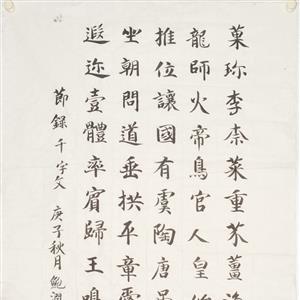 菓珍李柰菜重芥薑
龍師火帝鳥官人皇
推位讓國有虞陶唐
坐朝問道垂拱平章
遐迩壹體率賓歸王鳴
節録千字文 庚子秋月 鲍